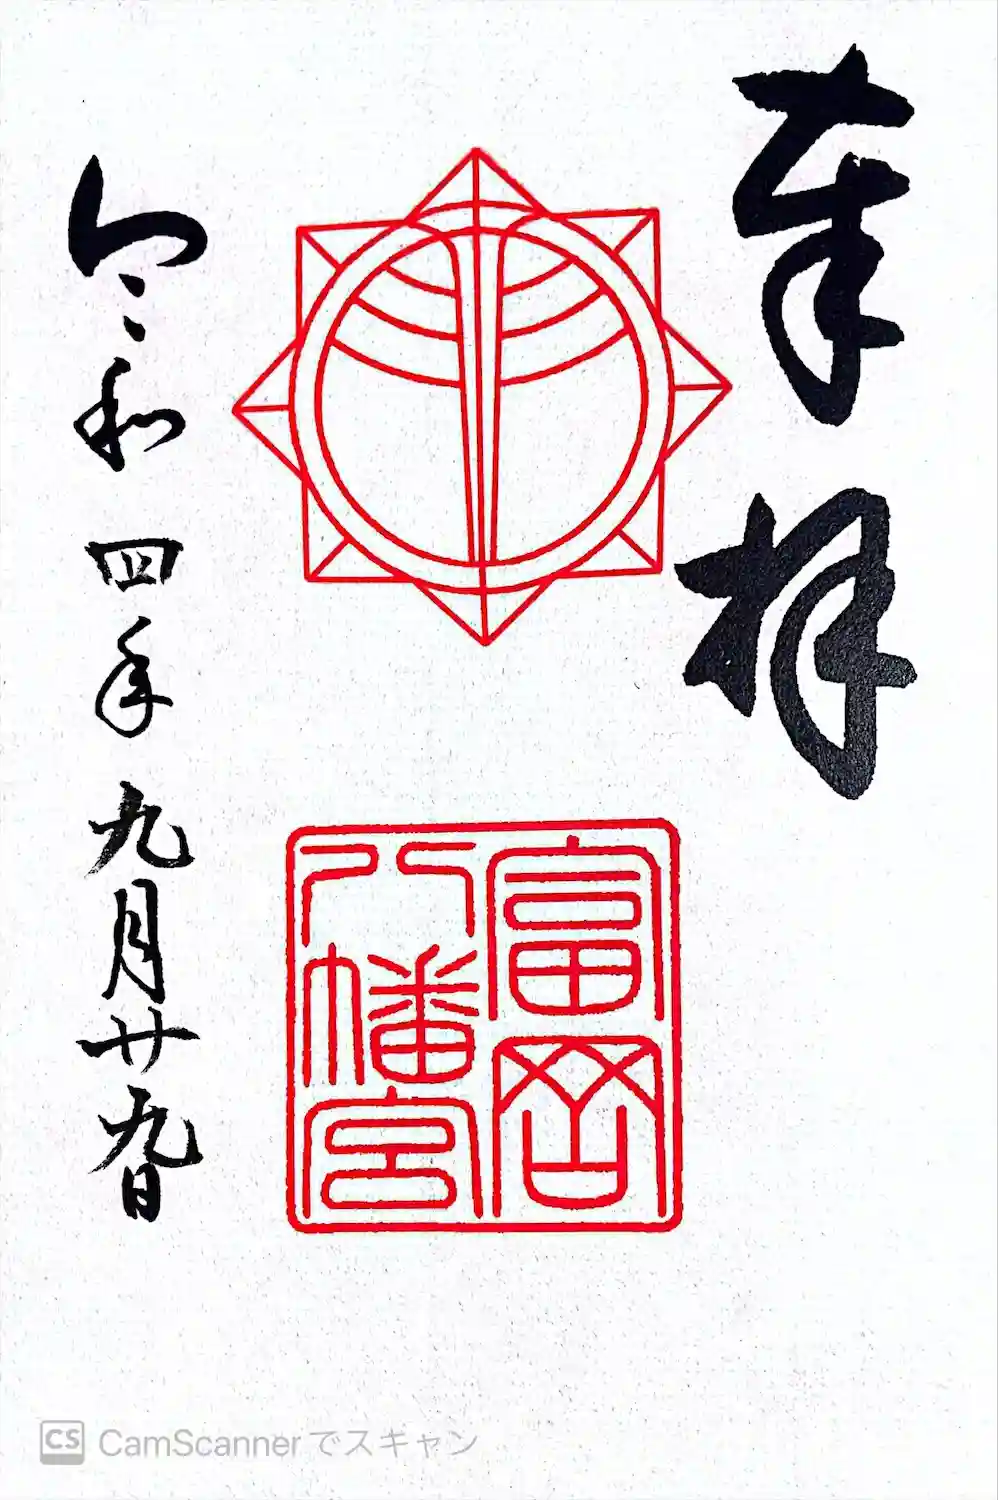 奉拝
富岡
八幡宮
令和四年九月廿九日
CS CamScannerでスキャン